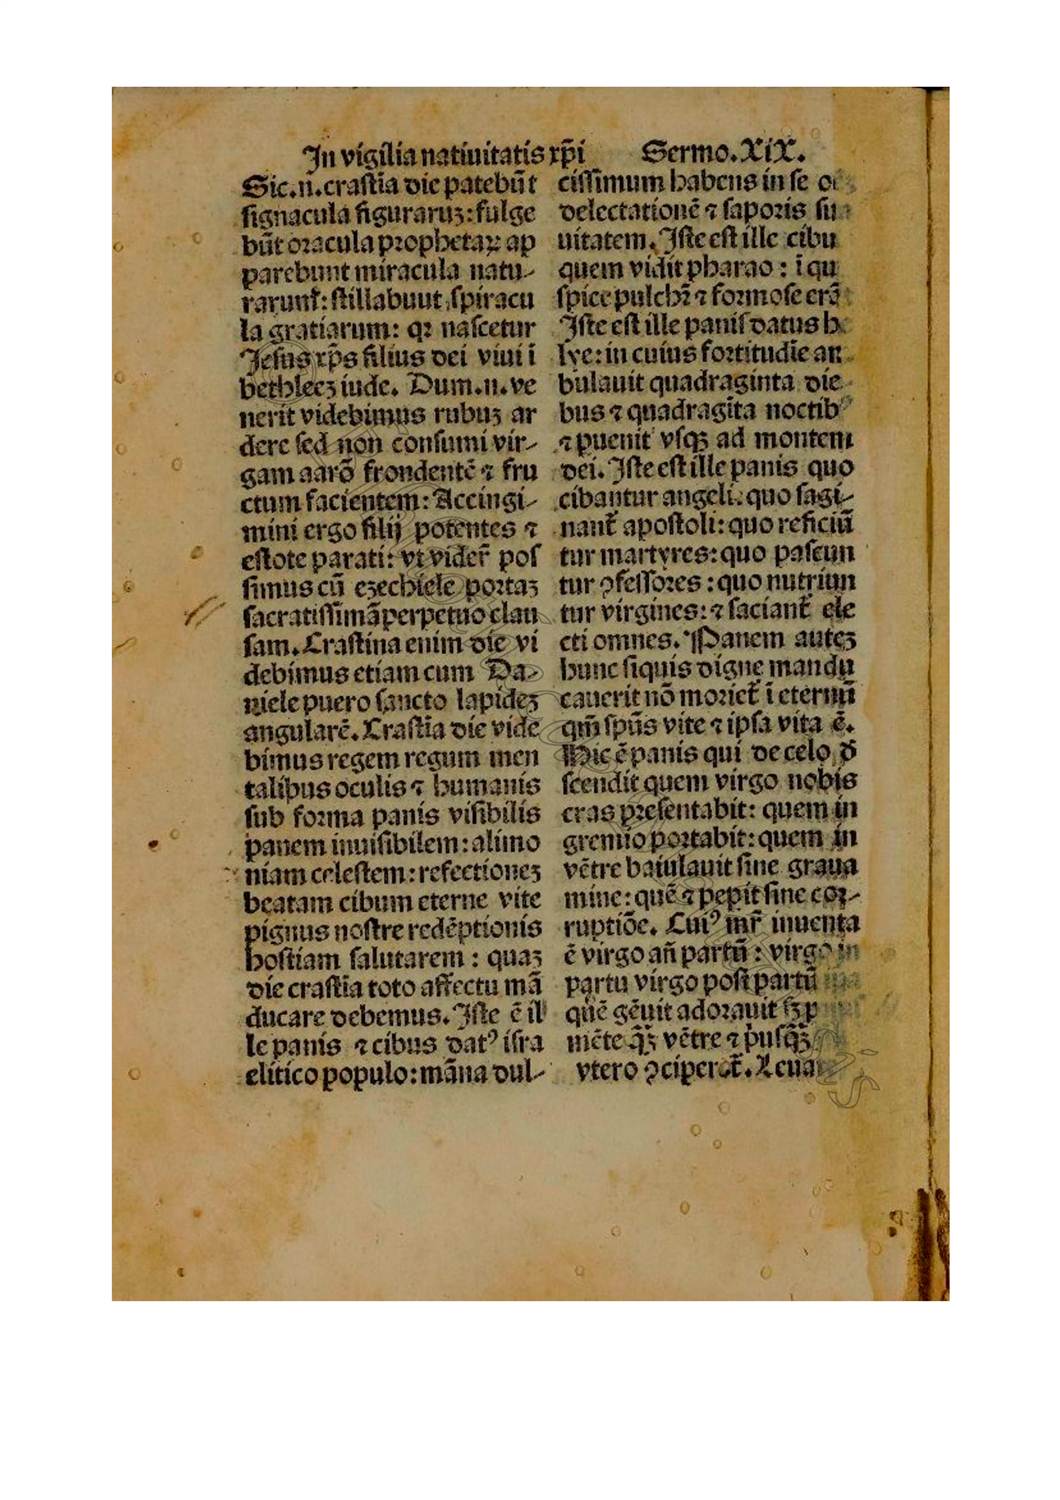 In vigilia natiuitatis xp̄i Sermo.XiX.
Sic.n̄.crastīa die patebūt
signacula figuraruȝ:fulge
būt oracula prophetaꝝ ap
parebunt miracula natu-
rarunt̄:stillabuut spiracu
la gratiarum: qꝛ nascetur
Jesus xp̄s filius dei viui ī
bethleeȝ iude. Dum.n̄.ve
nerit videbimus rubuȝ ar
dere sed non consumi vir-
gam aarō frondentē ⁊ fru
ctum facientem: Accingi-
mini ergo filij potentes ⁊
estote parati: vt vider̄ pos
simus cū eȝechiele portaȝ
sacratissimā perpetuo clau
sam. Crastina enim die vi
debimus etiam cum Da-
niele puero sancto lapideȝ
angularē. Crastīa die vide
bimus regem regum men
talibus oculis ⁊ humanis
sub forma panis visibilis
panem inuisibilem: alimo
niam celestem: refectioneȝ
beatam cibum eterne vite
pignus nostre redēptionis
hostiam salutarem : quaȝ
die crastīa toto affectu mā
ducare debemus. Iste ē il
le panis ⁊ cibus datꝰ isra
elitico populo: māna dul-
cissimum habens in se
delectationē ⁊ saporis
uitatem. Iste est ille cibu
quem vidit pharao : ī qu
spice pulchr̄ ⁊ formose erā
Iste est ille panis datus
lye: in cuius fortitudīe
bulauit quadraginta die
bus ⁊ quadragīta noctib
⁊ ꝑuenit vsqꝫ ad montem
dei. Iste est ille panis quo
cibantur angeli: quo sagi-
nant̄ apostoli: quo reficiū
tur martyres: quo pascun
tur ꝯfessores : quo nutriun
tur virgines: ⁊ saciant̄ ele
cti omnes. Panem auteȝ
hunc siquis digne mandu
cauerit nō moriet̄ ī eternū
qm̄ spūs vite ⁊ ipsa vita ē.
Hic ē panis qui de celo d̄
scendit quem virgo nobis
cras presentabit: quem in
gremio portabit: quem in
vētre baiulauit sine graua
mine: quē ⁊ peꝑit sine cor-
ruptiōe. Cuiꝰ mr̄ inuenta
ē virgo añ partū : virgo in
partu virgo post partū
quē gēuit adorauit
mēte qꝫ vētre ⁊ pusqꝫ
vtero ꝯciperet̄.